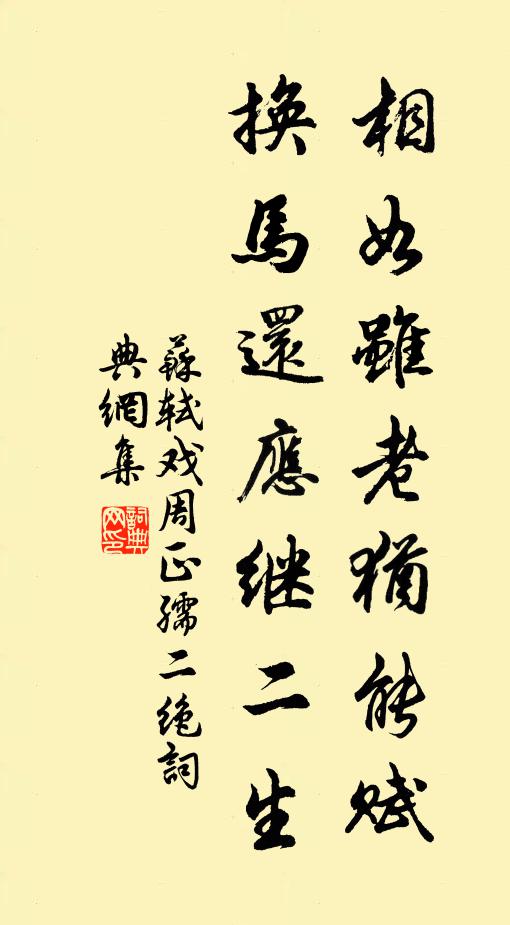 相如雖老猶能賦
換馬還應继二生
蘇軾戏周正孺二绝詞
典網集
詞典網印